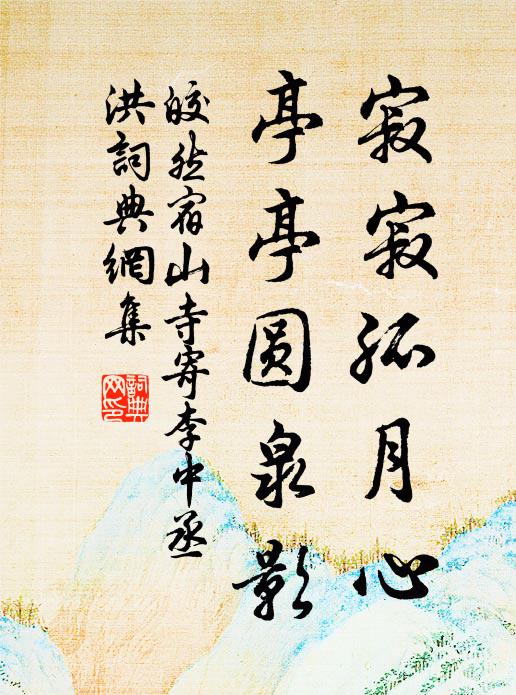 寂寂孤月心
亭亭圆泉影
皎然宿山寺寄李中丞
洪词典網集
詞典網印